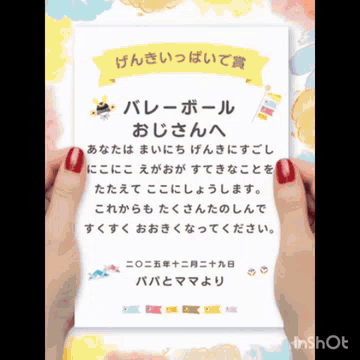 げんきいっぱいで賞
バレーボール
おじさんへ
あなたは まいにち げんきにすごし
にこにこ えがおが すてきなことを
たたえて ここにしょうします。
これからも たくさんたのしんで
すくすく おおきくなってください。
二〇二五年十二月二十九日
パパとママより
InShOt